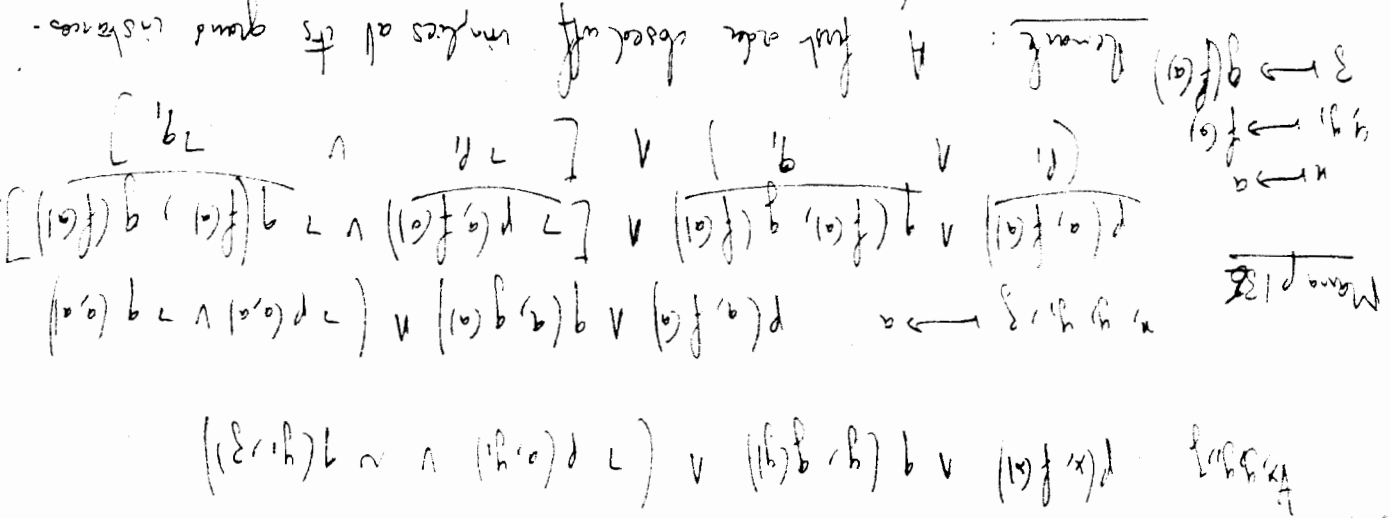 ∀x,y,y₁,z p(x, f(x)) ∧ q(y, g(y)) ∧ (¬ p(a, y₁) ∨ ~ q(y₁, z))
x, y, y₁, z ↦ a p(a, f(a)) ∧ q(a, g(a)) ∧ (¬ p(a,a) ∨ ¬ q(a,a))
Manna
p(a, f(a)) ∧ q(f(a), g(f(a))) ∧ [¬ p(a, f(a)) ∨ ¬ q(f(a), g(f(a)))]
x ↦ a
(p₁ ∧ q₁) ∧ [¬ p₁ ∨ ¬ q₁]
y, y₁ ↦ f(a)
z ↦ g(f(a))
Remark : A first order closed wff implies all its ground instances.